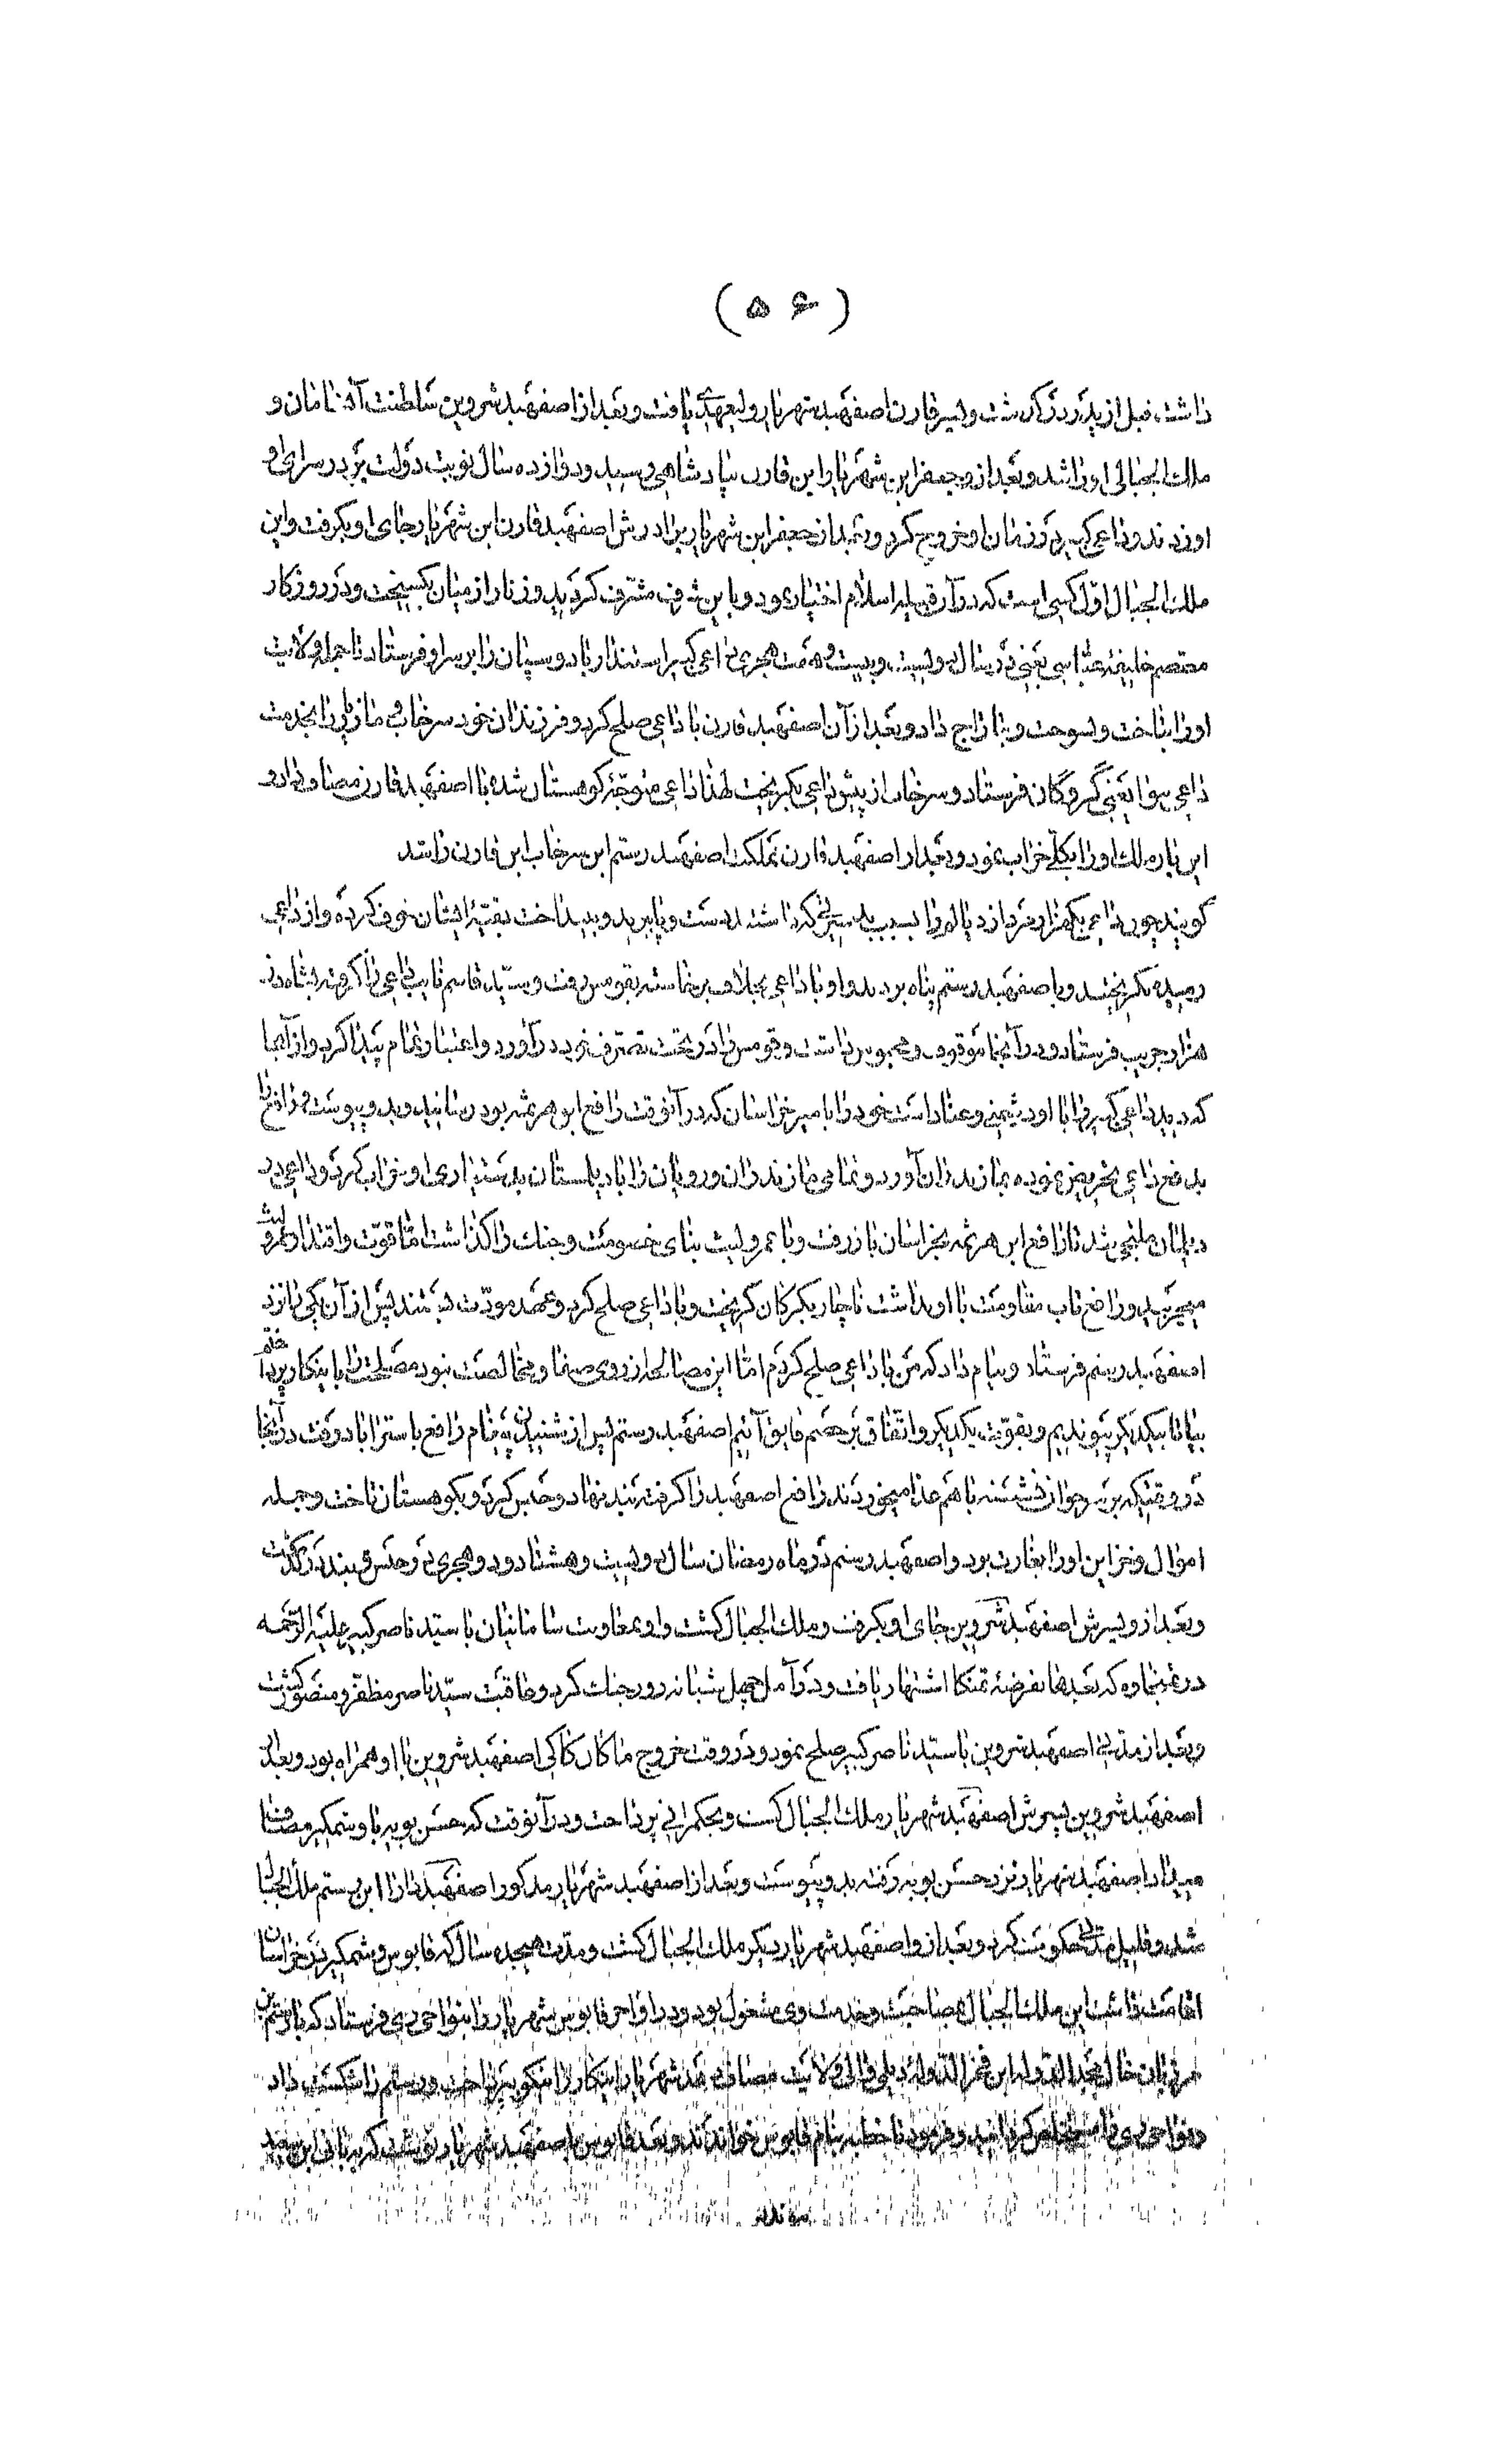 (۵۶)
داشت قبل از پدر درگذشت و پسر قارن اصفهبد شهریار ولیعهدی یافت و بعد از اصفهبد شروین سلطنت آن سامان و
ملک الجبالی او را شد و بعد از و جعفر ابن شهریار ابن قارن بپادشاهی رسید و دوازده سال نوبت دولت بر در سرای
او زدند و داعی کبیر در زمان او خروج کرد و بعد از جعفر ابن شهریار برادرش اصفهبد قارن ابن شهریار جای او بگرفت و این
ملک الجبال اول کسی است که در آن قبیله اسلام اختیار نمود و باین شرف مشرف گردید و زنار از میان بگسیخت و در روزکار
معتصم خلیفهٔ عباسی یعنی در سال دویست و بیست و هفت هجری داعی کبیر استندار بادوسپان را بر سر او فرستاد تا جمله ولایت
او را بتاخت و بسوخت و بتاراج داد و بعد از آن اصفهبد قارن با داعی صلح کرد و فرزندان خود سرخاب و مازیار را بخدمت
داعی بنوا یعنی گروگان فرستاد و سرخاب از پیش داعی بگریخت لهذا داعی متوجه کوهستان شده با اصفهبد قارن مصاف داد و
این باره ملک او را بکلی خراب نمود و بعد از اصفهبد قارن مملکت اصفهبد رستم ابن سرخاب ابن قارن را شد
گویند چون داعی یکهزار مرد از دیالمه را بسبب بد سیرتی که داشتند دست و پا برید و بینداخت بقیهٔ ایشان خوف کرده و از داعی
رمیده بگریختند و باصفهبد رستم پناه بردند و او با داعی بخلاف برخاسته بقومس رفت و سید قاسم نایب داعی را گرفته بشاه دز
هزار جریب فرستاد و در آنجا موقوف و محبوس داشت و قومس را در تحت تصرف خود درآورد و اعتبار تمام پیدا کرد و از آنجا
که دید داعی کبیر را با او دشمنی و عناد است خود را بامیر خراسان که در آنوقت رافع ابن هرثمه بود رسانید و بدو پیوست و رافع را
بدفع داعی تحریض نموده بمازندران آورد و تمامی مازندران و رویان را با دیلمستان بدستیاری او خراب کرد و داعی در
دیلمان ملتجی شد تا رافع ابن هرثمه بخراسان باز رفت و با عمرو لیث بنای خصومت و جنک را گذاشت اما قوت و اقتدار عمرو لیث
میچربید و رافع تاب مقاومت با او نداشت ناچار بگرگان گریخت و با داعی صلح کرد و عهد مودت بستند پس از آن یکی را نزد
اصفهبد رستم فرستاد و پیام داد که من با داعی صلح کردم اما این مصالحه از روی صفا و مخالصت نبود مصلحت را باینکار پرداختم
بیا تا بیکدیگر پیوندیم و بقوت یکدیگر و اتفاق بر خصم فایق آئیم اصفهبد رستم پس از شنیدن پیغام رافع باستراباد رفت در آنجا
در وقتیکه بر سر خوان نشسته با هم غذا میخوردند رافع اصفهبد را گرفته بند نهاد و حبس کرد و بکوهستان تاخت و جمله
اموال و خزاین او را بغارت برد و اصفهبد رستم در ماه رمضان سال دویست و هشتاد و دو هجری در حبس و بند درگذشت
و بعد از و پسرش اصفهبد شروین جای او بگرفت و ملک الجبال گشت و او بمعاونت سامانیان با سید ناصر کبیر علیه الرحمه
در که بعدها بفرضهٔ تمنکا اشتهار یافت و در آمل چهل شبانه روز جنک کرد و عاقبت سید ناصر مظفر و منصور گشت
و بعد از مدتی اصفهبد شروین با سید ناصر کبیر صلح نمود و در وقت خروج ماکان کاکی اصفهبد شروین با او همراه بود و بعد از
اصفهبد شروین پسرش اصفهبد شهریار ملک الجبال گشت و بحکمرانی پرداخت و در آنوقت که حسن بویه با وشمگیر مصاف
میداد اصفهبد شهریار نزد حسن بویه رفته بدو پیوست و بعد از اصفهبد شهریار مذکور اصفهبد دارا ابن رستم ملک الجبال
شده و قلیل مدتی حکومت کرد و بعد از و اصفهبد شهریار دیگر ملک الجبال گشت و مدت هیجده سال که قابوس وشمگیر در خراسان
اقامت داشت این ملک الجبال بمصاحبت و خدمت وی مشغول بود و در اواخر قابوس شهریار را بنواحی ری فرستاد که با رستم بن
مرزبان خال مجد الدوله ابن فخر الدوله دیلمی والی ولایت مصاف دهد شهریار اینکار را نیکو بپرداخت و رستم را شکست داد
و نواحی ری را مستخلص گردانید و فرمود تا خطبه بنام قابوس خواندند و بعد قابوس باصفهبد شهریار